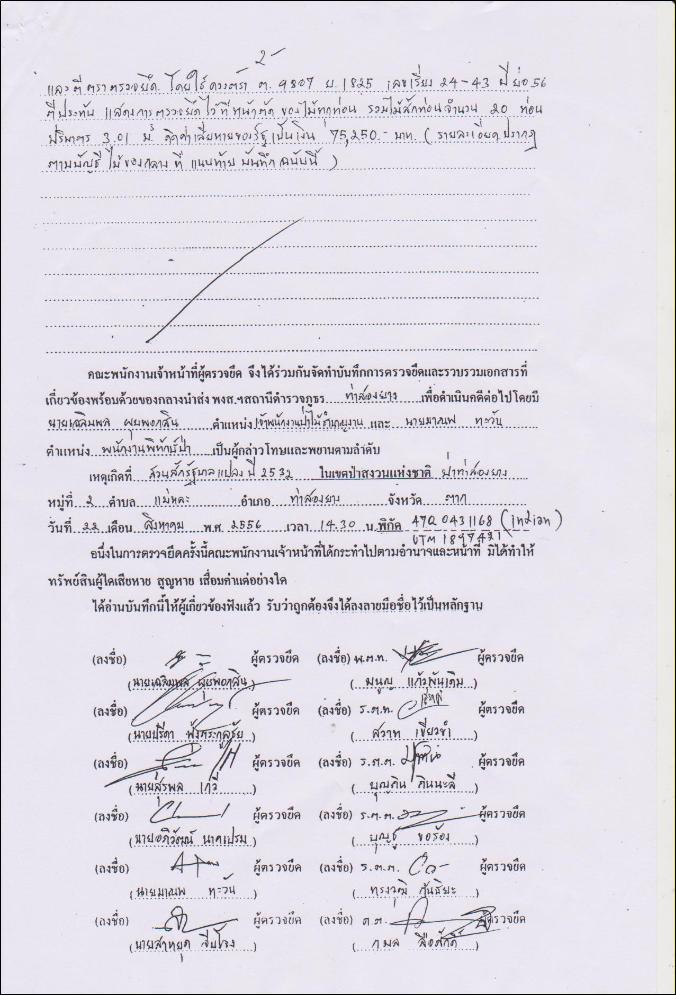 -2-
และตีตราตรวจยึด โดยใช้ดวงตรา ต. 9807 ย. 1825 เลขเรียง 24-43 ปี ย่อ 56
ตีประทับ แสดงการตรวจยึดไว้ที่หน้าตัด ของไม้ทุกท่อน รวมไม้สักท่อนจำนวน 20 ท่อน
ปริมาตร 3.01 ม³ คิดค่าเสียหายของรัฐเป็นเงิน 75,250.- บาท. (รายละเอียดปรากฏ
ตามบัญชีไม้ของกลางที่แนบท้ายบันทึกฉบับนี้)
คณะพนักงานเจ้าหน้าที่ผู้ตรวจยึด จึงได้ร่วมกันจัดทำบันทึกการตรวจยึดและรวบรวมเอกสารที่
เกี่ยวข้องพร้อมด้วยของกลางนำส่ง พงส.ฯสถานีตำรวจภูธร ท่าสองยาง เพื่อดำเนินคดีต่อไปโดยมี
นายเฉลิมพล ตำแหน่ง เจ้าพนักงานป่าไม้ชำนาญงาน และ นายมาณพ ทะวัน
ตำแหน่ง พนักงานพิทักษ์ป่า เป็นผู้กล่าวโทษและพยานตามลำดับ
เหตุเกิดที่ สวนสักรัฐบาลแปลงปี 2532 ในเขตป่าสงวนแห่งชาติ ป่าท่าสองยาง
หมู่ที่ 2 ตำบล แม่หละ อำเภอ ท่าสองยาง จังหวัด ตาก
วันที่ 22 เดือน สิงหาคม พ.ศ. 2556 เวลา 14.30 น. พิกัด 47Q 0431168 (indian)
UTM 1897421
อนึ่งในการตรวจยึดครั้งนี้คณะพนักงานเจ้าหน้าที่ได้กระทำไปตามอำนาจและหน้าที่ มิได้ทำให้
ทรัพย์สินผู้ใดเสียหาย สูญหาย เสื่อมค่าแต่อย่างใด
ได้อ่านบันทึกนี้ให้ผู้เกี่ยวข้องฟังแล้ว รับว่าถูกต้องจึงได้ลงลายมือชื่อไว้เป็นหลักฐาน
(ลงชื่อ) ผู้ตรวจยึด (ลงชื่อ) พ.ต.ท. ผู้ตรวจยึด
(นายเฉลิมพล) (มนูญ แก้วพันเดิม)
(ลงชื่อ) ผู้ตรวจยึด (ลงชื่อ) ร.ต.ท. ผู้ตรวจยึด
(นายปรีดา) (สวาท เขียวขำ)
(ลงชื่อ) ผู้ตรวจยึด (ลงชื่อ) ร.ต.ต. ผู้ตรวจยึด
(นายสุรพล) (บุญคิน คินนะลี)
(ลงชื่อ) ผู้ตรวจยึด (ลงชื่อ) ร.ต.ต. ผู้ตรวจยึด
(นายอภิวัฒน์ นาคเปรม) (บุญชู ขอร้อง)
(ลงชื่อ) ผู้ตรวจยึด (ลงชื่อ) ร.ต.ต. ผู้ตรวจยึด
(นายมาณพ ทะวัน) (ทรงวุฒิ กันธิยะ)
(ลงชื่อ) ผู้ตรวจยึด (ลงชื่อ) ด.ต. ผู้ตรวจยึด
(นายสาหยุด) (กมล ลือศักดิ์)